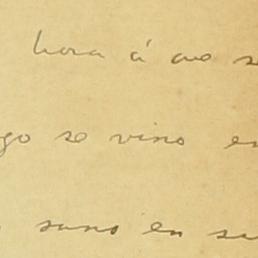 hora á que s
go se vino en
sano en su